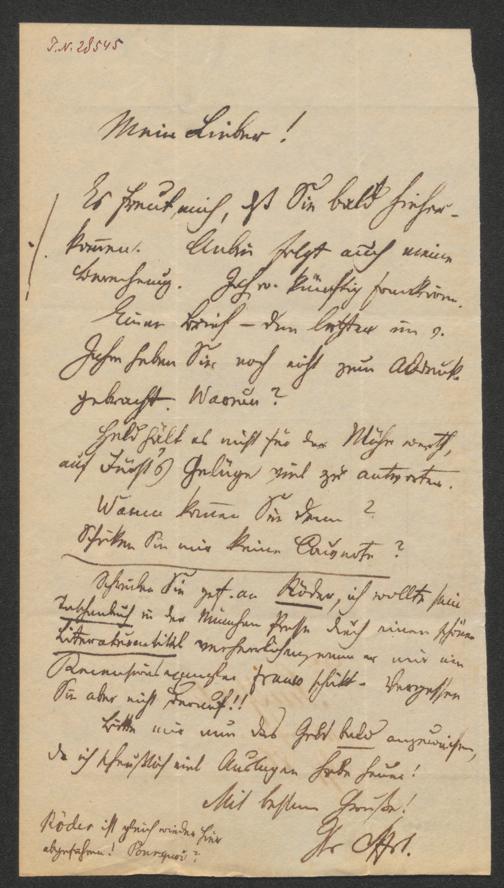 J.N. 28545
Mein Lieber!
Es freut mich, dß Sie bald hieher-
kom̅en. Anbei folgt auch meine
Berechnung. Ich künftig
Einen Brief – den letzten im v.
Jahr haben Sie noch nicht zum Abdruck
gebracht. Warum?
Held hält es nicht für der Mühe werth,
auf Fürst's Gelüge viel zu antworten.
Wann kom̅en Sie denn?
Schicken Sie mir keine ?
Schreiben Sie gef. an Röder, ich wollte sein
Taschenbuch in der Münchner Presse durch einen schönen
Literaturartikel verherrlichen, wenn er mir ein
Recensionsexemplar franco schickt. Vergessen
Sie aber nicht darauf!!
Bitte mir nun das Geld bald anzuweisen,
da ich scheußlich viel Auslagen habe heuer!
Mit bestem Gruße!
Ihr
Röder ist gleich wieder hier
abgefahren! Pourquoi?